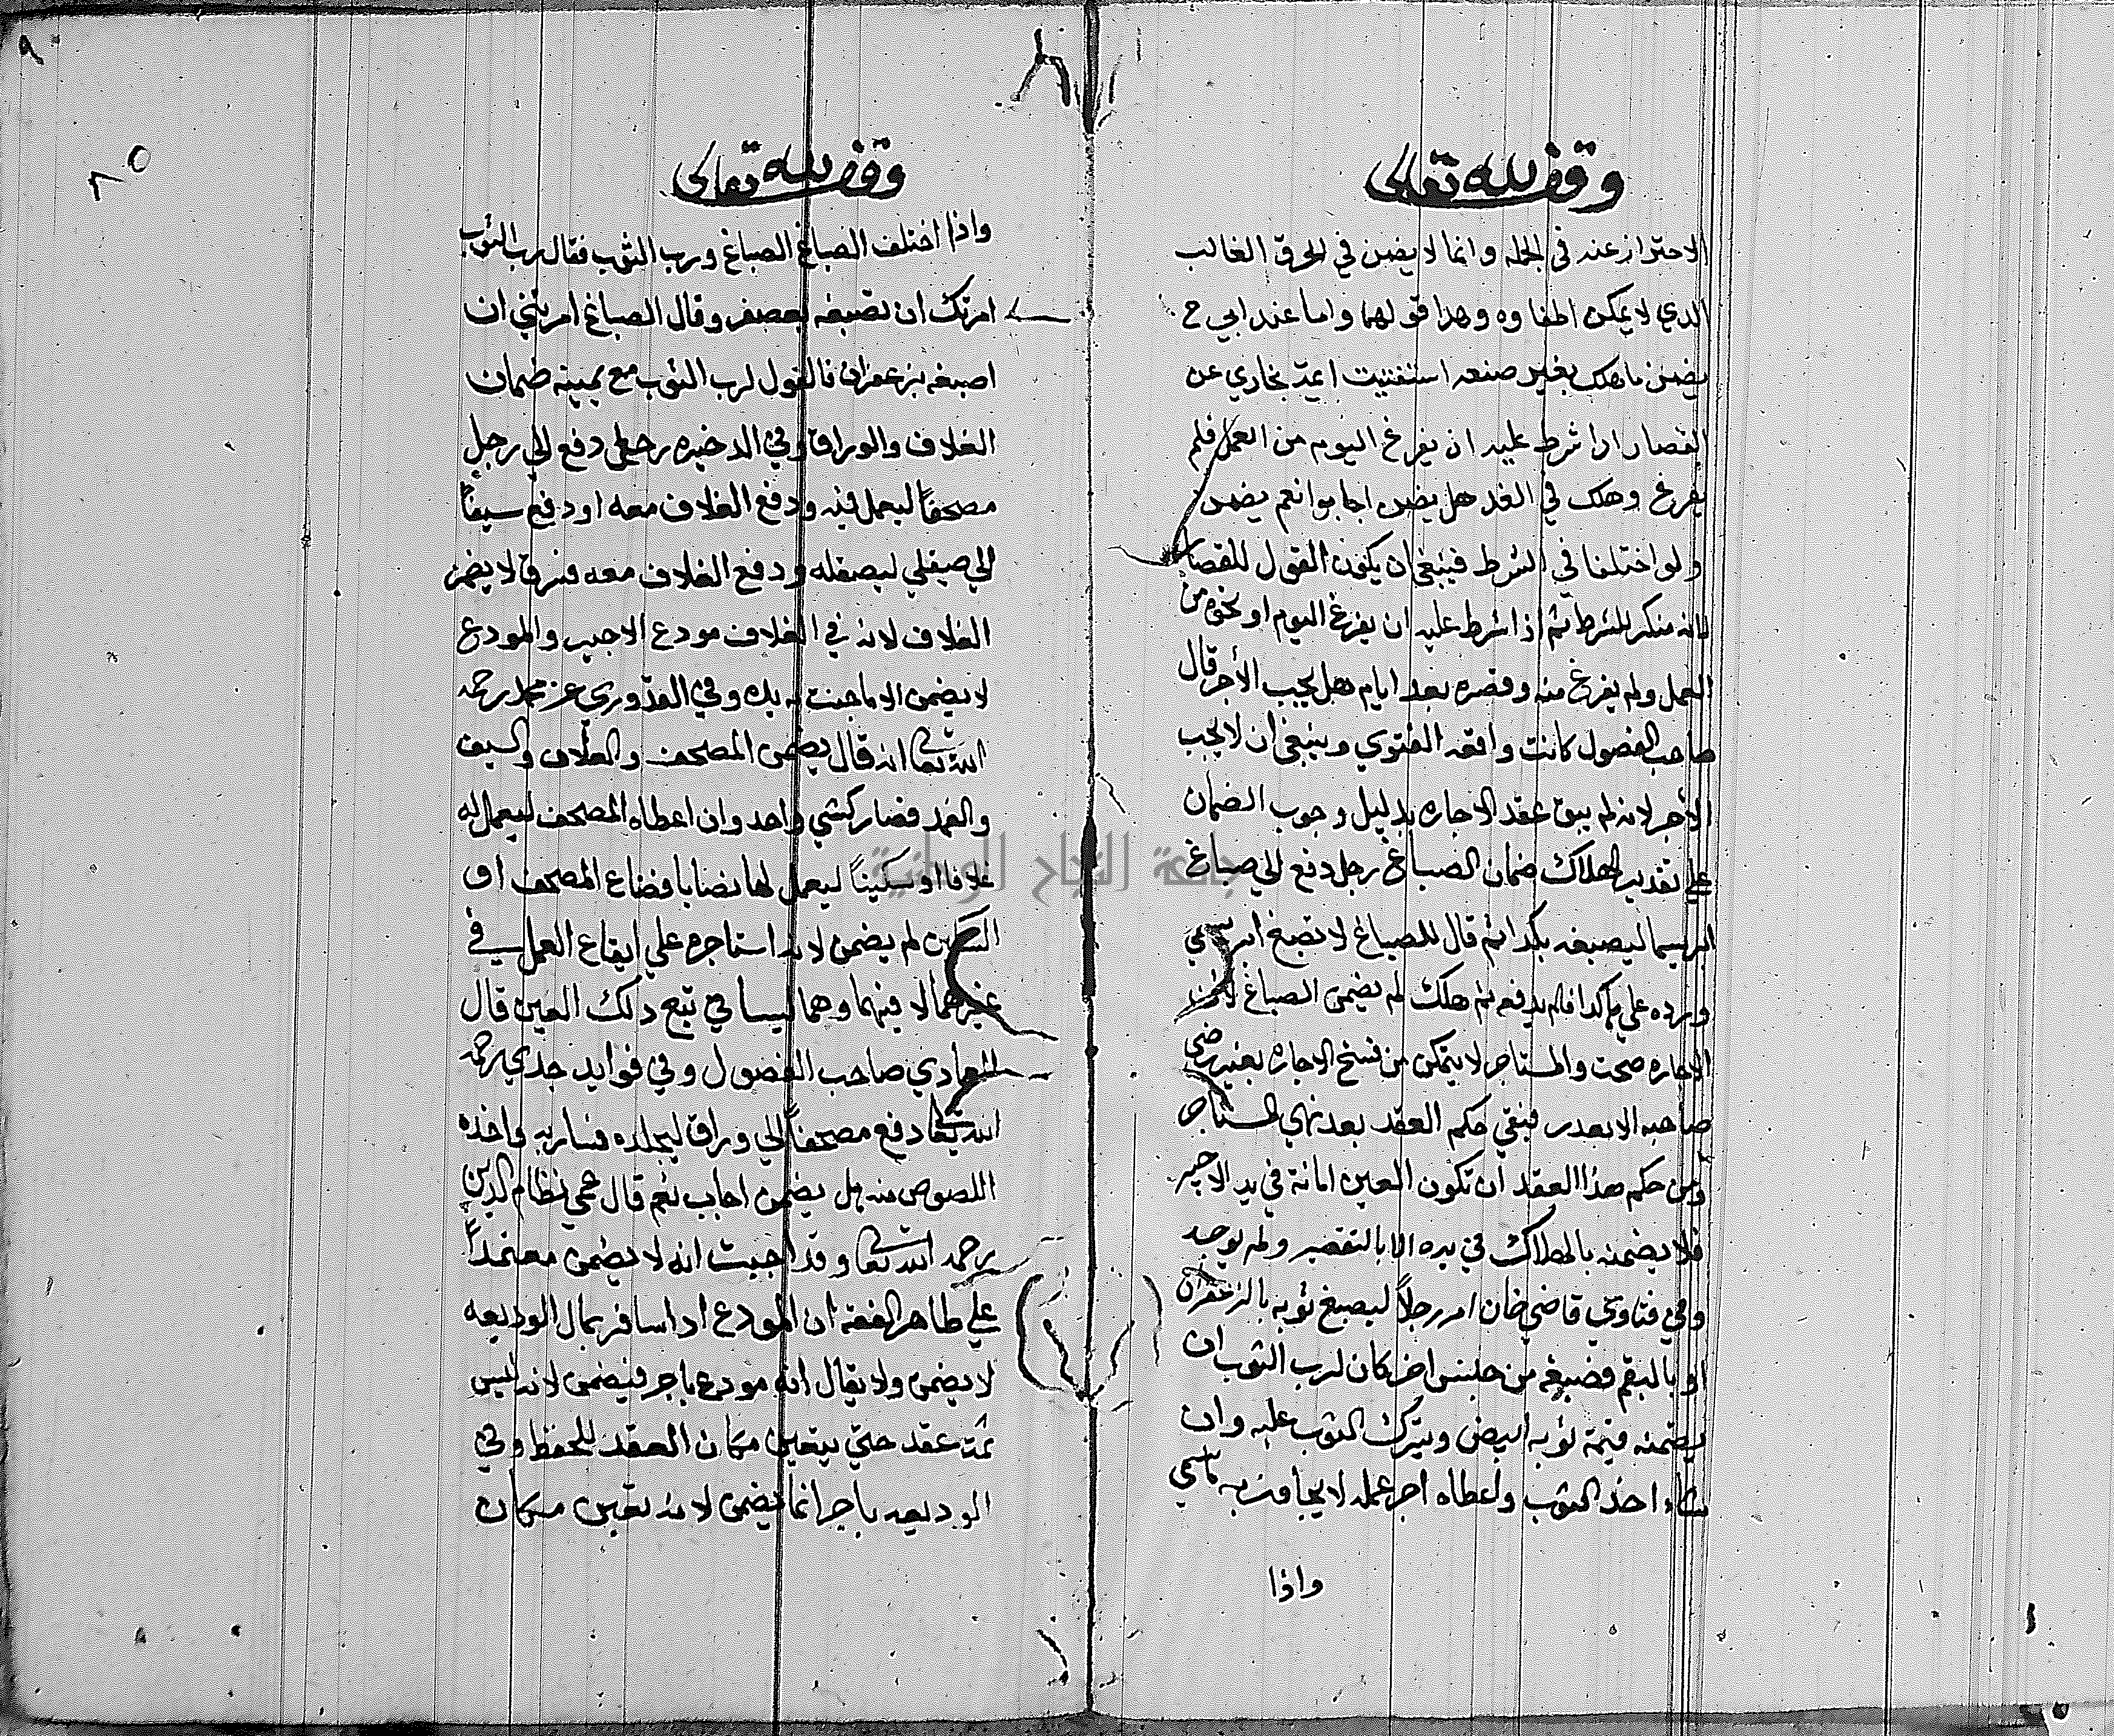 وقف لله تعالى
الاحتراز عنه في الجملة وانما لا يضمن في الحرق الغالب
الدي لا يمكن اطفاوه وهذا قولهما واما عند ابي ح
يضمن ما هلك بغير صنعه استفتيت ايمة بخاري عن
القصار ادا شرط عليه ان يفرغ اليوم من العمل فلم
يفرغ وهلك في الغد هل يضمن اجابوا نعم يضمن
ولو اختلفا في الشرط فينبغي ان يكون القول للقصار
لانه منكر للشرط ثم اذا شرط عليه ان يفرغ اليوم او نحوه من
العمل ولم يفرغ منه وقصره بعد ايام هل يجب الأجر قال
صاحب الفصول كانت واقعه الفتوي وينبغي ان لا يجب
الأجر لانه لم يبق عقد الاجاره بدليل وجوب الضمان
علي تقدير الهلاك ضمان الصباغ رجل دفع الي صباغ
ابريسما ليصبغه بكدا ثم قال للصباغ لا تصبغ ابريسمي
ورده علي كدا فلم يدفع ثم هلك لم يضمن الصباغ لان
الاجاره صحت والمستاجر لا يتمكن من فسخ الاجاره بغير رضي
صاحبه الا بعدر فبقي حكم العقد بعد نهي المستاجر
ومن حكم هذا العقد ان تكون العين امانة في يد الاجير
فلا يضمنه بالهلاك في يده الا بالتقصير ولم يوجد
وفي فتاوي قاضي خان امر رجلاً ليصبغ ثوبه بالزعفران
او بالبقم فصبغه من جنس اخر كان لرب الثوب ان
يضمنه قيمة ثوبه ابيض ويترك الثوب عليه وان
شاء اخذ الثوب واعطاه اجر عمله لا يجاوز به ما سمي
واذا
وقف لله تعالى
واذا اختلف الصباغ الصباغ ورب الثوب فقال رب الثوب
امرتك ان تصبغه بعصفر وقال الصباغ امرتني ان
اصبغه بزعفران فالقول لرب الثوب مع يمينه ضمان
الغلاف والوراق وفي الدخيره رجل دفع الي رجل
مصحفاً ليعمل فيه ودفع الغلاف معه او دفع سيفاً
الي صيقلي ليصقله ودفع الغلاف معه فسرق لا يضمن
الغلاف لانه في الغلاف مودع الاجير والمودع
لا يضمن الا ما جنت يده وفي القدوري عن محمد رحمه
الله تعالي انه قال يضمن المصحف والغلاف والسيف
والغمد فصار كشي واحد وان اعطاه المصحف ليعمل له
غلافا او سكيناً ليعمل لها نصابا فضاع المصحف او
السكين لم يضمن لانه استاجره علي ايقاع العمل في
غيرهما لا فيهما وهما ليسا في تبع دلك العين قال
العمادي صاحب الفصول وفي فوايد جدي رحمه
الله تعالي دفع مصحفاً الي وراق ليجلده فسافر به واخذه
اللصوص منه هل يضمن اجاب نعم قال عمي نظام الدين
رحمه الله تعالي وقد اجبت انه لا يضمن معتمداً
علي ظاهر الفقه ان المودع ادا سافر بمال الوديعه
لا يضمن ولا يقال انه مودع باجر فيضمن لانه ليس
ثمة عقد حتي يتعين مكان العقد للحفظ وفي
الوديعه باجر انما يضمن لانه تعين مكان
٩
٢٥
جامعة النجاح الوطنية